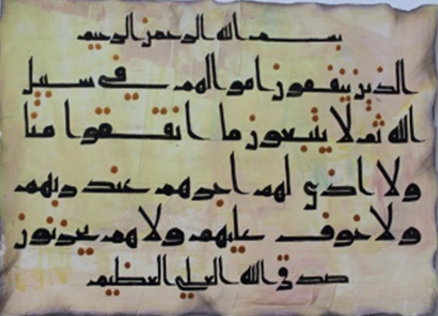 بسم الله الرحمن الرحيم
الذين ينفقون اموالهم في سبيل
الله ثم لا يتبعون ما انفقوا منا
ولا اذى لهم اجرهم عند ربهم
ولا خوف عليهم ولا هم يحزنون
صدق الله العلي العظيم